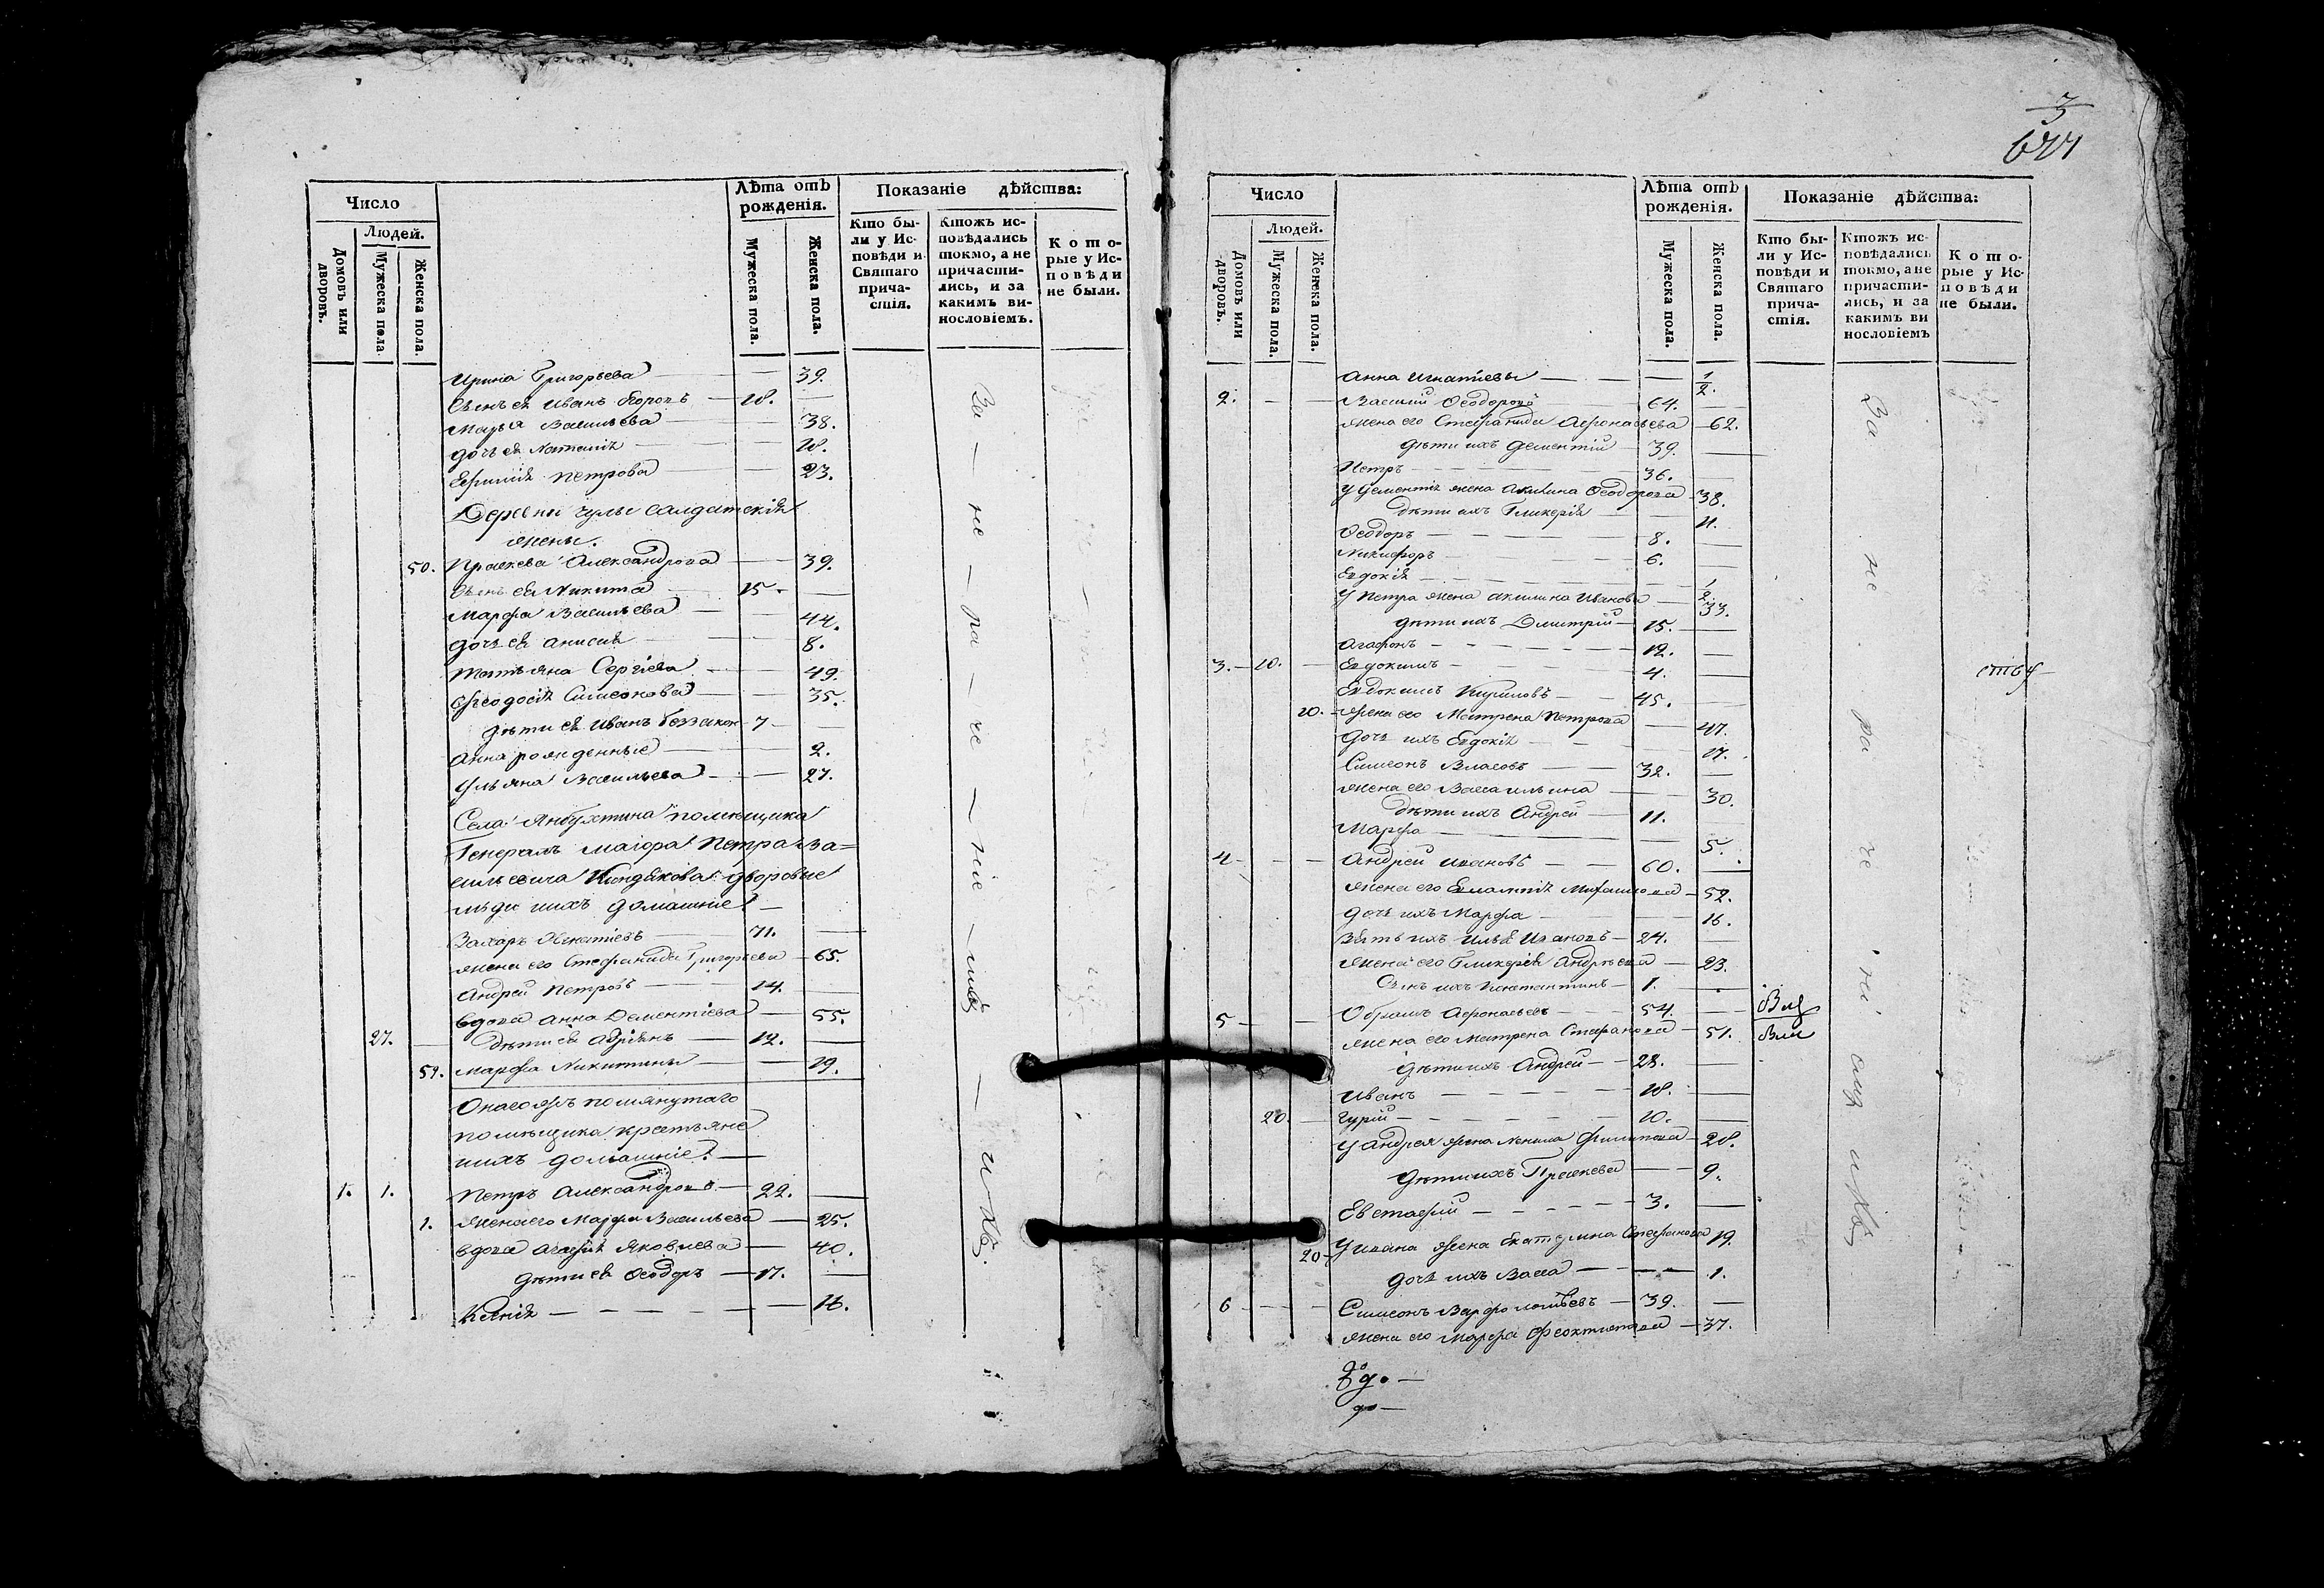 Число
Людей.
Домовъ или дворовъ.
Мужеска пола.
Женска пола.
Лѣта отъ рожденія.
Мужеска пола.
Женска пола.
Показаніе дѣйства:
Кто были у Исповѣди и Святаго причастія.
Ктожъ исповѣдались токмо, а не причастились, и за какимъ винословіемъ.
Которые у Исповѣди не были.
Ирина Григорьева — 39.
Сынъ ея Иванъ Егоровъ — 18. —
Марья Васильева — 38.
дочь ея Наталія — 18.
Ефимія Петрова — 23.
Деревни Чулы салдатскія
жены.
50. Праскева Александрова — 39.
Сынъ ея Никита 15. —
Марфа Васильева — 44.
дочь ея Анисія — 8.
Татьяна Сергіева — 49.
Феодосія Симеонова — 35.
дѣти ея Иванъ беззакон 7 —
Анна рожденные — 2.
Ульяна Васильева — 27.
Села Янбухтина помѣщика
Генералъ маіора Петра Ва=
сильевича Киндякова дворовые
люди ихъ домашніе —
Захаръ Игнатіевъ — 71. —
жена его Стефанида Григорьева — 65.
Андрей Петровъ — 14. —
вдова Анна Дементіева — 55.
27. — дѣти ея Адріянъ — 12. —
51. Марфа Никитина — 19.
Онаго жъ помянутаго
помѣщика крестьяне
ихъ домашніе. —
1. 1. Петръ Александровъ — 22. —
1. Жена его Марфа Васильева — 25.
вдова Агафія Яковлева — 40.
дѣти ея Ѳеодоръ — 17. —
Ксенія — 16.
За — не — ра — че — ніе — мъ — и — хъ.
3
Число
Людей.
Домовъ или дворовъ.
Мужеска пола.
Женска пола.
Лѣта отъ рожденія.
Мужеска пола.
Женска пола.
Показаніе дѣйства:
Кто были у Исповѣди и Святаго причастія.
Ктожъ исповѣдались токмо, а не причастились, и за какимъ ви нословіемъ
Которые у Исповѣди не были.
Анна Игнатіевы — 1/2.
2. — — Василій Ѳеодоровъ 64. —
жена его Стефанида Афонасьева — 62.
дѣти ихъ Дементій — 39. —
Петръ — 36. —
У Дементія жена Акилина Ѳеодорова — 38.
дѣти ихъ Гликерія — 11.
Ѳеодоръ — 8. —
Никифоръ — 6. —
Евдокія — 1/2.
У Петра жена Акилина Иванова — 33.
дѣти ихъ Дмитрій — 15. —
Агафонъ — 12. —
3. — 10. — Евдокимъ — 4. —
Евдокимъ Кириловъ — 45. —
10. — жена его Матрена Петрова — 47.
дочь ихъ Евдокія — 17.
Симеонъ Власовъ — 32. —
жена его Васа Ильина — 30.
дѣти ихъ Андрей — 11.
Марфа — 5.
4 — — — Андрей Ивановъ — 60. —
жена его Евлампія Михайлова — 52.
дочь ихъ Марфа — 16.
Зять ихъ Илья Ивановъ — 24. —
жена его Гликерія Андреева — 23.
Сынъ ихъ Константинъ — 1. —
5 — — Абрамъ Афонасьевъ — 54. —
жена его Матрена Стефанова — 51.
дѣти ихъ Андрей — 28. —
Иванъ — 18. —
20. — Гурій — 10. —
У Андрея жена Ненила Филипова — 28.
дѣти ихъ Праскева — 9.
Евстафій — 3. —
20 — У Ивана жена Екатерина Стефанова 19.
дочь ихъ Васса — 1.
6 — — — Симеонъ Варфоломѣевъ — 39. —
жена его Марфа Феоктистова — 37.
За не ра че ні емъ ихъ